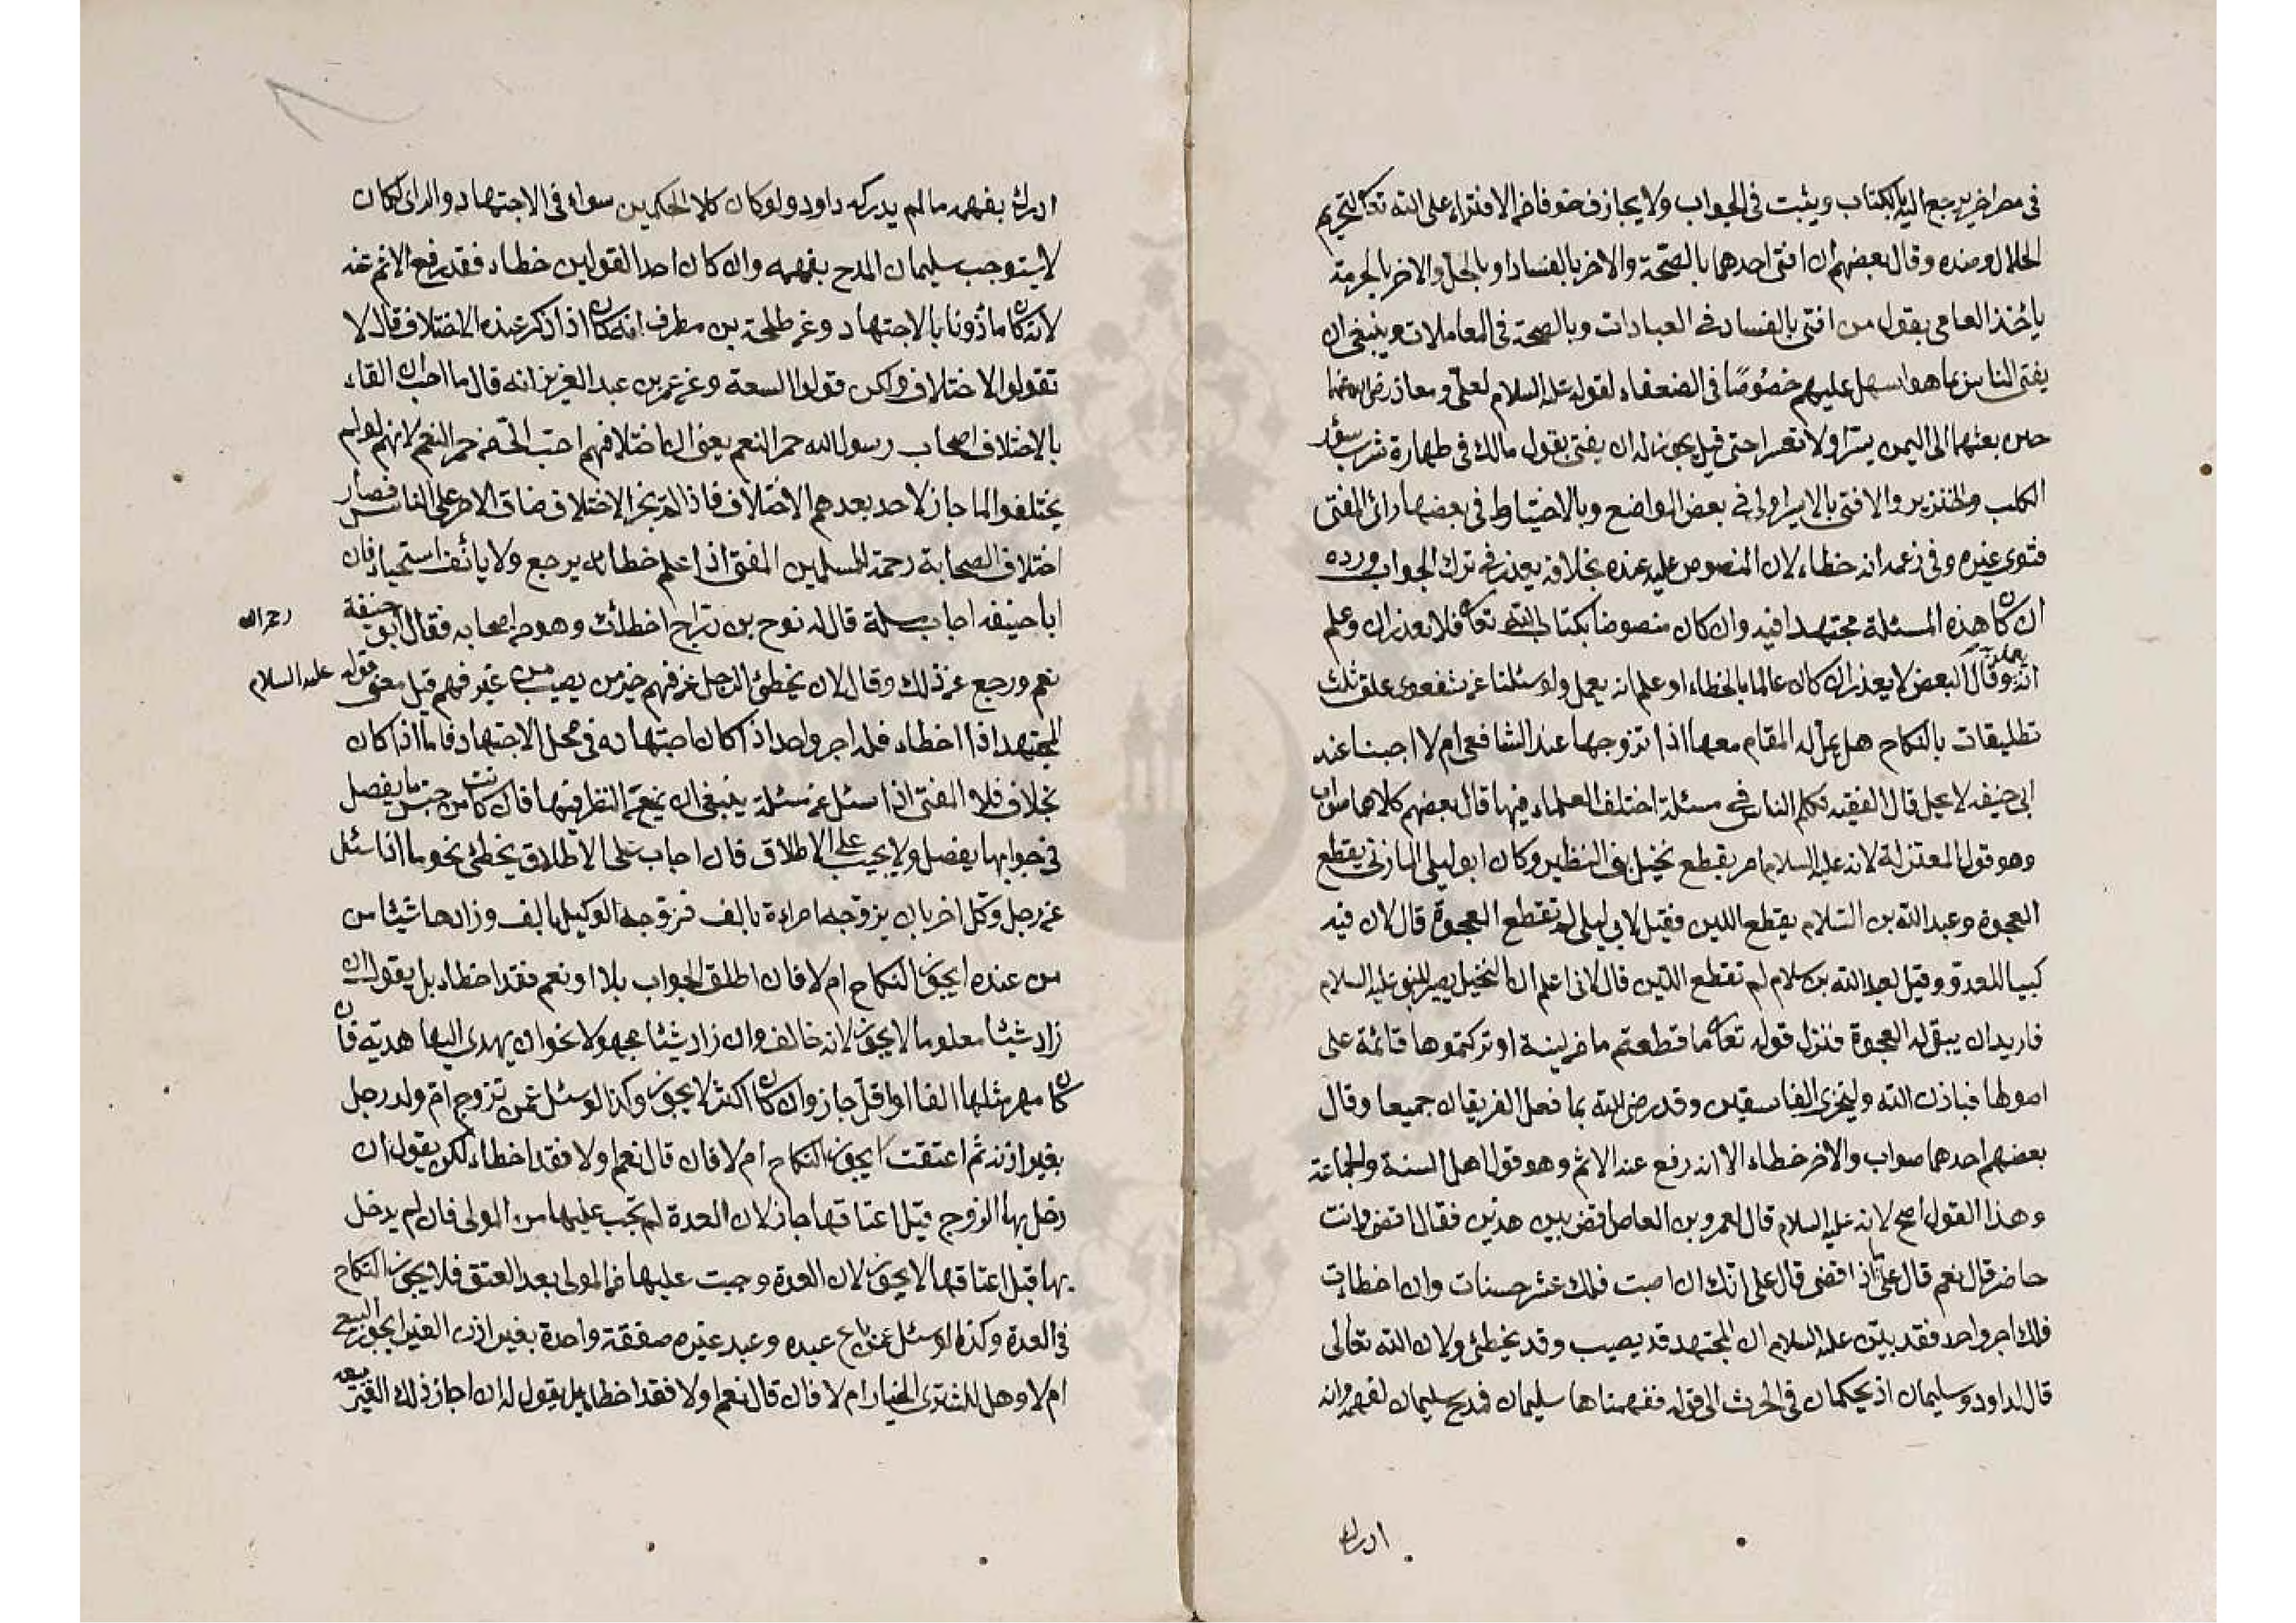 في مصر اخر يرجع اليه بالكتاب ويثبت في الجواب ولا يجازف خوفا من الافتراء على الله تعالى بتحريم
الحلال وضده وقال بعضهم ان افتى احدهما بالصحة والاخر بالفساد او بالحل والاخر بالحرمة
يأخذ العامي بقول من افتى بالفساد في العبادات وبالصحة في المعاملات وينبغي ان
يفتى الناس بما هو اسهل عليهم خصوصا في الضعفاء لقوله عليه السلام لعلي ومعاذ رضي الله عنهما
حين بعثهما الى اليمن يسرا ولا تعسرا حتى قيل يجوز له ان يفتى بقول مالك في طهارة سؤر
الكلب والخنزير والافتى بالابراء في بعض المواضع وبالاحتياط في بعضها رأى المفتى
فتوى غيره وفي زعمه انه خطاء لان المنصوص عليه عنده بخلافه يعذر في ترك الجواب ورده
ان كان هذه المسئلة مجتهدا فيه وان كان منصوصا بكتاب الله تعالى فلا يعذر ان وعلم
انه يعمل به وقال البعض لا يعذر ان كان عالما بالخطاء او علم انه يعمل ولو سئلنا عن شفعوى علق ثلث
تطليقات بالنكاح هل يحل له المقام معها اذا تزوجها عند الشافعى ام لا اجبنا عند
ابي حنيفه لا يحل قال الفقيه تكلم الناس في مسئلة اختلف العلماء فيها قال بعضهم كلاهما صواب
وهو قول المعتزلة لانه عليه السلام امر بقطع نخيل بنى النظير وكان ابو ليلى المازنى يقطع
العجوة وعبد الله بن السلام يقطع اللين فقيل لابي ليلى لم تقطع العجوة قال لان فيه
كبيا للعدو وقيل لعبد الله بن سلام لم تقطع اللين قال لانى اعلم ان النخيل يصير للنبي عليه السلام
فاريد ان يبقى له العجوة فنزل قوله تعالى ما قطعتم من لينة او تركتموها قائمة على
اصولها فباذن الله وليخزى الفاسقين وقد رضى الله بما فعل الفريقان جميعا وقال
بعضهم احدهما صواب والاخر خطاء الا انه رفع عنه الاثم وهو قول اهل السنة والجماعة
وهذا القول اصح لانه عليه السلام قال لعمرو بن العاص اقض بين هذين فقال اقضى وانت
حاضر قال نعم قال على ماذا اقضى قال على انك ان اصبت فلك عشر حسنات وان اخطات
فلك اجر واحد فقد بين عليه السلام ان المجتهد قد يصيب وقد يخطئ ولان الله تعالى
قال لداود وسليمان اذ يحكمان في الحرث الى قوله ففهمناها سليمان فمدح سليمان لفهمه وانه
ادرك
ادرك بفهمه ما لم يدركه داود ولو كان كلا الحكمين سواء في الاجتهاد والراى لكان
لا يستوجب سليمان المدح بفهمه وان كان احد القولين خطاء فقد رفع الاثم عنه
لانه كان مأذونا بالاجتهاد وعن طلحة بن مطرف انه كان اذا ذكر عنده الاختلاف قال لا
تقولوا الاختلاف ولكن قولوا السعة وعن عمر بن عبد العزيز انه قال ما احب ان القاء
بالاختلاف اصحاب رسول الله حمر النعم يعنى ان اختلافهم احب الى من حمر النعم لانهم لو لم
يختلفوا لما جاز لاحد بعدهم الاختلاف فاذا لم يجز الاختلاف ضاق الامر على الناس فصار
اختلاف الصحابة رحمة للمسلمين المفتى اذا علم خطائه يرجع ولا يأنف استحياء فان
ابا حنيفه اجاب مسئلة قال له نوح بن دراج اخطئت وهو من اصحابه فقال ابو حنيفة رحمه الله
نعم ورجع عن ذلك وقال لان يخطئ الرجل عن فهم خير من يصيب من غير فهم قيل معنى قوله عليه السلام
المجتهد اذا اخطاء فله اجر واحد اذا كان اجتهاده في محل الاجتهاد فاما اذا كان
بخلاف فلا المفتى اذا سئل عن مسئلة ينبغى ان يمعن النظر فيها فان كانت من جنس ما يفصل
في جوابها يفصل ولا يجيب على الاطلاق فان اجاب على الاطلاق يخطئ نحو ما اذا سئل
عن رجل وكل اخر بان يزوجه امراءة بالف فزوجه الوكيل بالف وزادها شيئا من
من عنده ايجوز النكاح ام لا فان اطلق الجواب بلا او نعم فقد اخطاء بل يقول ان
زاد شيئا معلوما لا يجوز لانه خالف وان زاد شيئا مجهولا نحو ان يهدى اليها هدية فان
كان مهر مثلها الفا او اقل جاز وان كان اكثر لا يجوز وكذا لو سئل عمن تزوج ام ولد رجل
بغير اذنه ثم اعتقت ايجوز النكاح ام لا فان قال نعم او لا فقد اخطاء لكن يقول ان
دخل بها الزوج قبل اعتاقها جاز لان العدة لم تجب عليها من المولى فان لم يدخل
بها قبل اعتاقها لا يجوز لان العدة وجبت عليها من المولى بعد العتق فلا يجوز النكاح
في العدة وكذا لو سئل عمن باع عبده وعبد غيره صفقة واحدة بغير اذن الغير ايجوز البيع
ام لا وهل للمشترى الخيار ام لا فان قال نعم او لا فقد اخطاء بل يقول له ان اجاز ذلك الغير بيعه